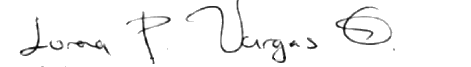 Lorena P. Vargas G.